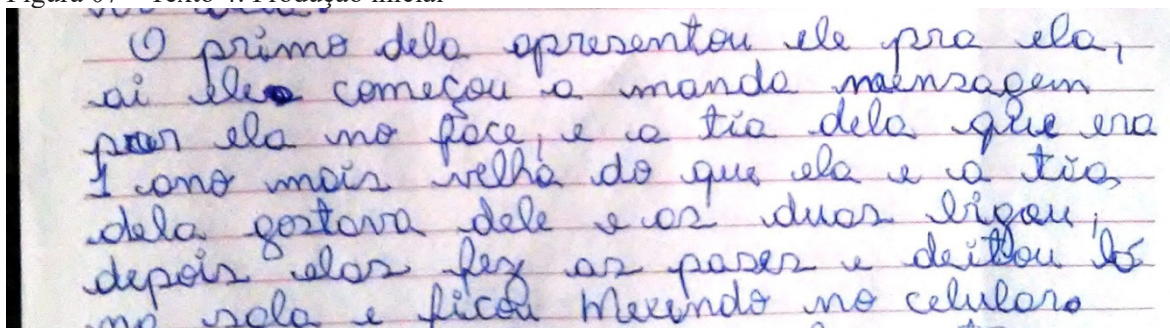 Figura 07 – Texto 4: Produção inicial
O primo dela apresentou ele pra ela,
ai ele começou a manda mensagem
pra ela no face, e a tia dela que era
1 ano mais velha do que ela e a tia
dela gostava dele e as duas brigou,
depois elas fez as pases e deitou lá
na sala e ficou mexendo no celular.